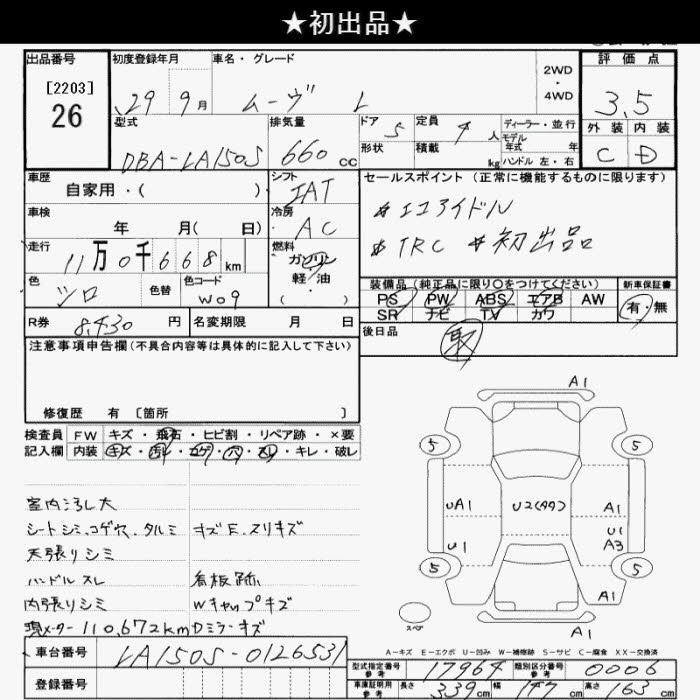 ★初出品★
出品番号 初度登録年月 車名・グレード 2WD・4WD 評価点
[2203] 26 29 9月 ムーヴ L 3.5
型式 排気量 ドア 5 定員 4人 ディーラー・並行 外装 内装
DBA-LA150S 660cc 形状 積載 kg モデル年式 年 ハンドル 左・右 C D
車歴 自家用・( ) シフト IAT セールスポイント (正常に機能するものに限ります)
車検 年 月(日) 冷房 AC エコアイドル
走行 11万0千668km 燃料 ガソリン 軽・油 ・( ) TRC 初出品
色 シロ 色替 色コード W09 装備品(純正品に限り○をつけてください) 新車保証書
PS PW ABS エアB AW 有・無
SR ナビ TV カワ
R券 8,430円 名変期限 月 日 後日品
注意事項申告欄(不具合内容等は具体的に記入して下さい)
修復歴 有 〔箇所 〕
A1
検査員 FW キズ・飛石・ヒビ割・リペア跡・×要
記入欄 内装 キズ・汚レ・コゲ・穴・スレ・キレ・破レ
5 5
室内汚レ大
UA1 U2(タタ) A1
シートシミ、コゲ穴、タルミ キズE、スリキズ
U1 U1 A3
天張りシミ
5 5
ハンドルスレ 看板跡
A1
内張りシミ Wキャップキズ
スペア A1
現メーター110,672km Dミラーキズ
A-キズ E-エクボ U-凹み W-補修跡 S-サビ C-腐食 XX-交換済
車台番号 LA150S-0126531
型式指定番号 参考 17964 類別区分番号 参考 0006
登録番号 車庫証明用 参考 長さ 339cm 幅 147cm 高さ 163cm